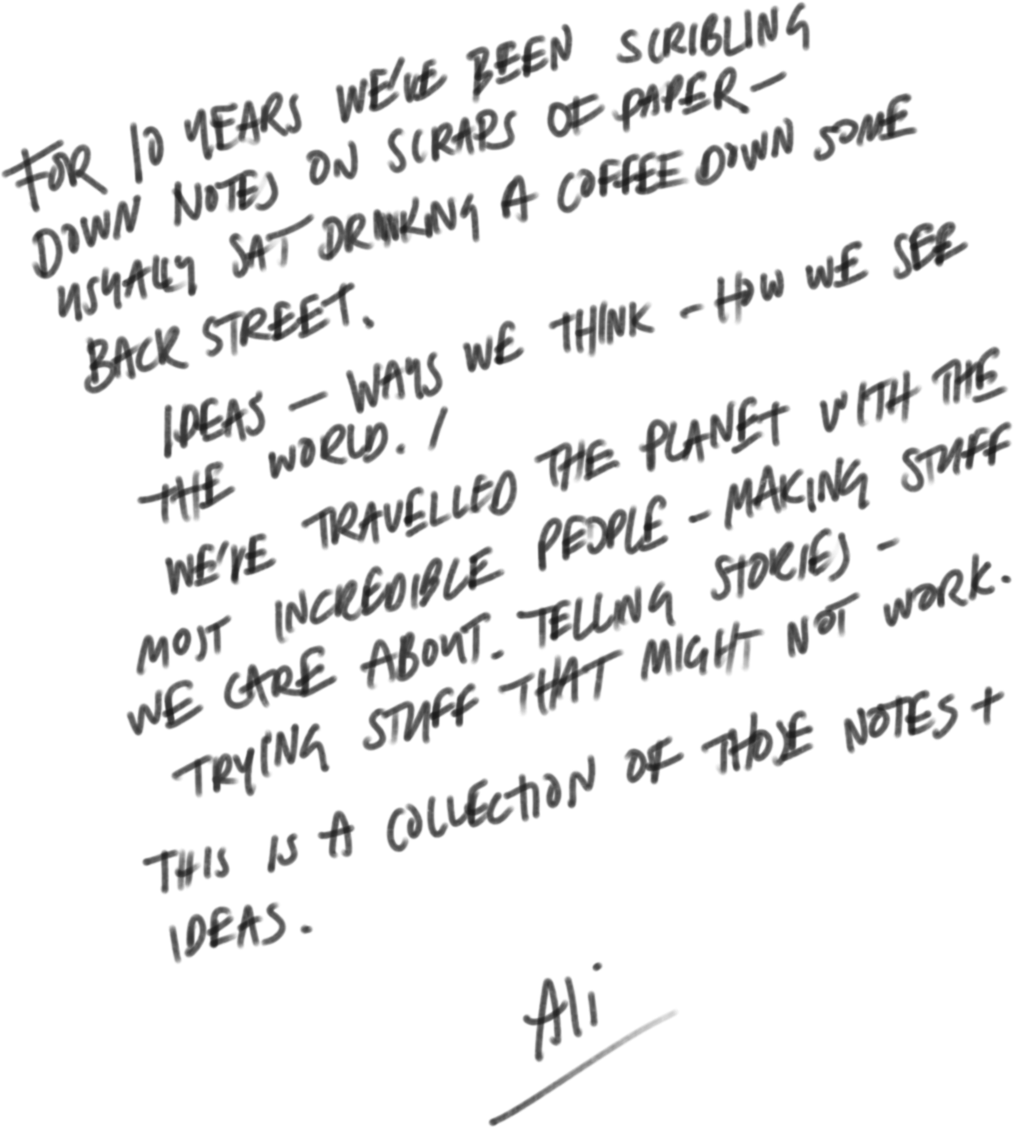 FOR 10 YEARS WE'VE BEEN SCRIBLING
DOWN NOTES ON SCRAPS OF PAPER –
USUALLY SAT DRINKING A COFFEE DOWN SOME
BACK STREET.
IDEAS – WAYS WE THINK – HOW WE SEE
THE WORLD. /
WE'VE TRAVELLED THE PLANET WITH THE
MOST INCREDIBLE PEOPLE – MAKING STUFF
WE CARE ABOUT. TELLING STORIES –
TRYING STUFF THAT MIGHT NOT WORK.
THIS IS A COLLECTION OF THOSE NOTES +
IDEAS.
Ali